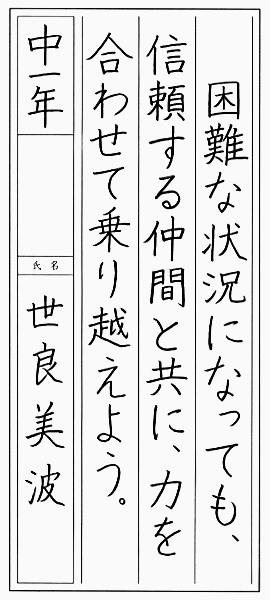 困難な状況になっても、
信頼する仲間と共に、力を
合わせて乗り越えよう。
中一年
氏名
世良美波